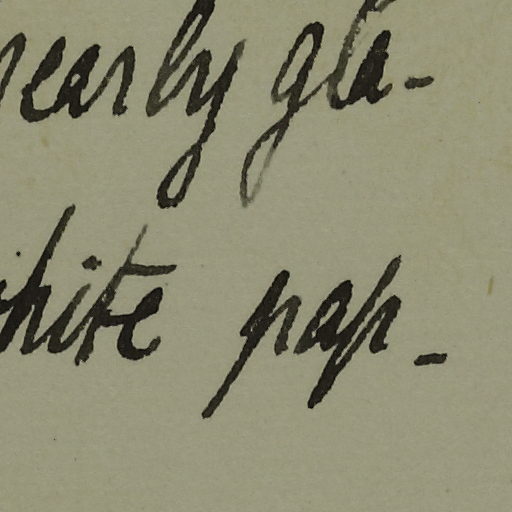 nearly gla-
white pap-